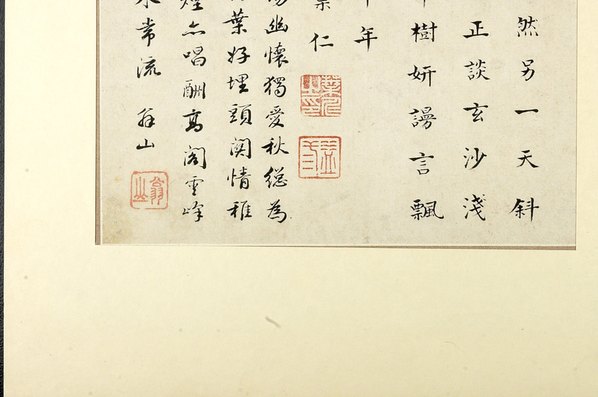 然另一天斜
正談玄沙淺
樹妍謾言飄
年
仁
幽懷獨愛秋緫為
葉好埋頭関情稚
唱酬高阁雲峰
常流 山